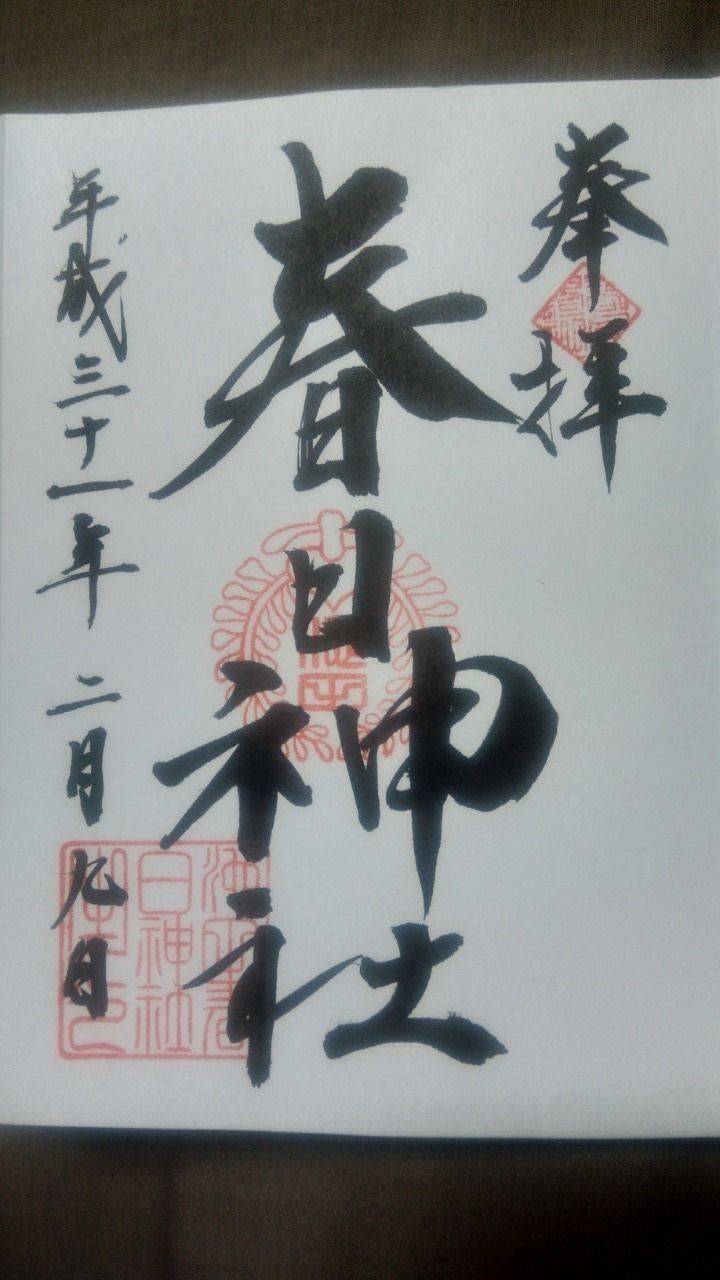 奉拝
春日神社
平成三十一年 二月九日